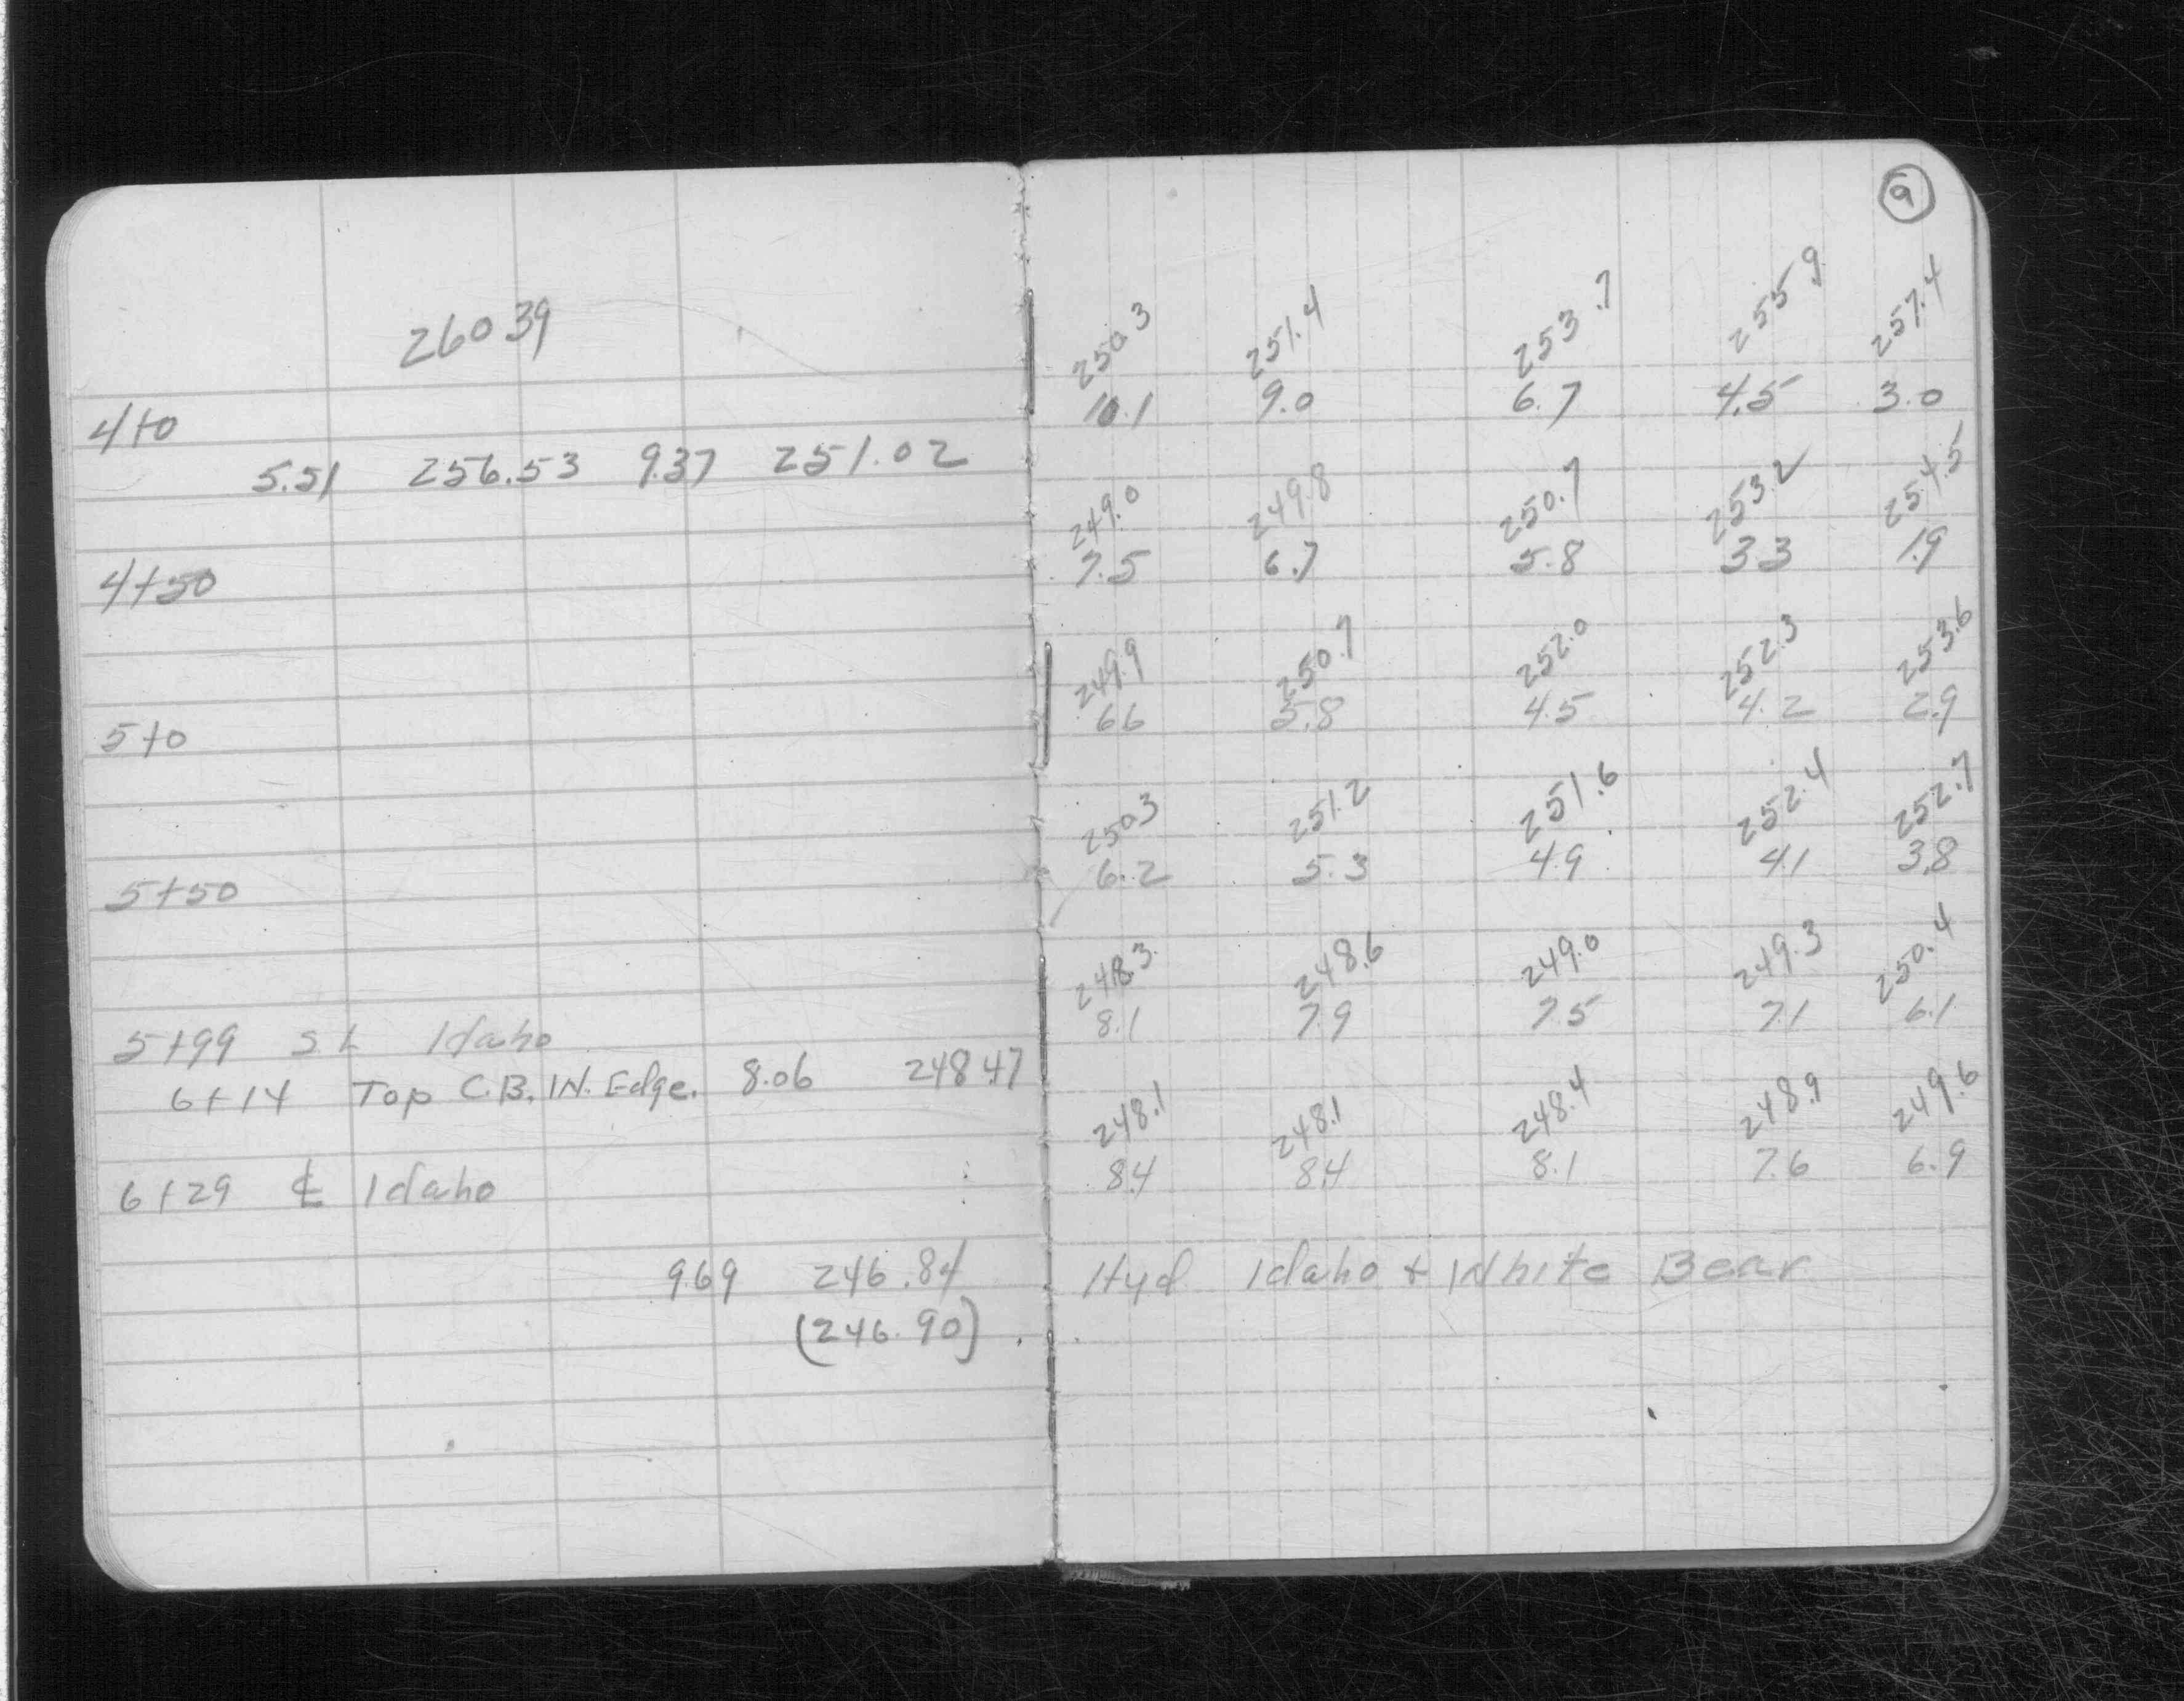 260 39
4+0
5.51 256.53 9.37 251.02
4+50
5+0
5+50
5+99 S L Idaho
6+14 Top C.B. W. Edge. 8.06 248 47
6+29 ℄ Idaho
9.69 246.84
(246.90)
9
250 3 251.4 253.7 255 9 257.4
10.1 9.0 6.7 4.5 3.0
249.0 249.8 250.7 253.2 254.5
7.5 6.7 5.8 3.3 1.9
249.9 250.7 252.0 252.3 253.6
6.6 5.8 4.5 4.2 2.9
250.3 251.2 251.6 252.4 252.7
6.2 5.3 4.9 4.1 3.8
248.3 248.6 249.0 249.3 250.4
8.1 7.9 7.5 7.1 6.1
248.1 248.1 248.4 248.9 249.6
8.4 8.4 8.1 7.6 6.9
Hyd Idaho + White Bear